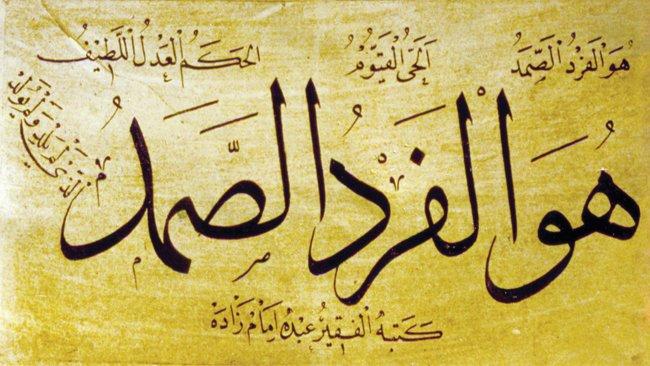 هُوَ الْفَرْدُ الْصَّمَدُ اَلْحَىُّ الْقَيُّومُ الْحَكَمُ الْعَدْلُ اللَّطِيفُ
هُوَ الْفَرْدُ الصَّمَدُ
الَّذِي لَمْ يَلِدْ وَلَمْ يُولَدْ
كَتَبَهُ الْفَقِيرُ عَبْدُهُ اِمَامْ زَادَه